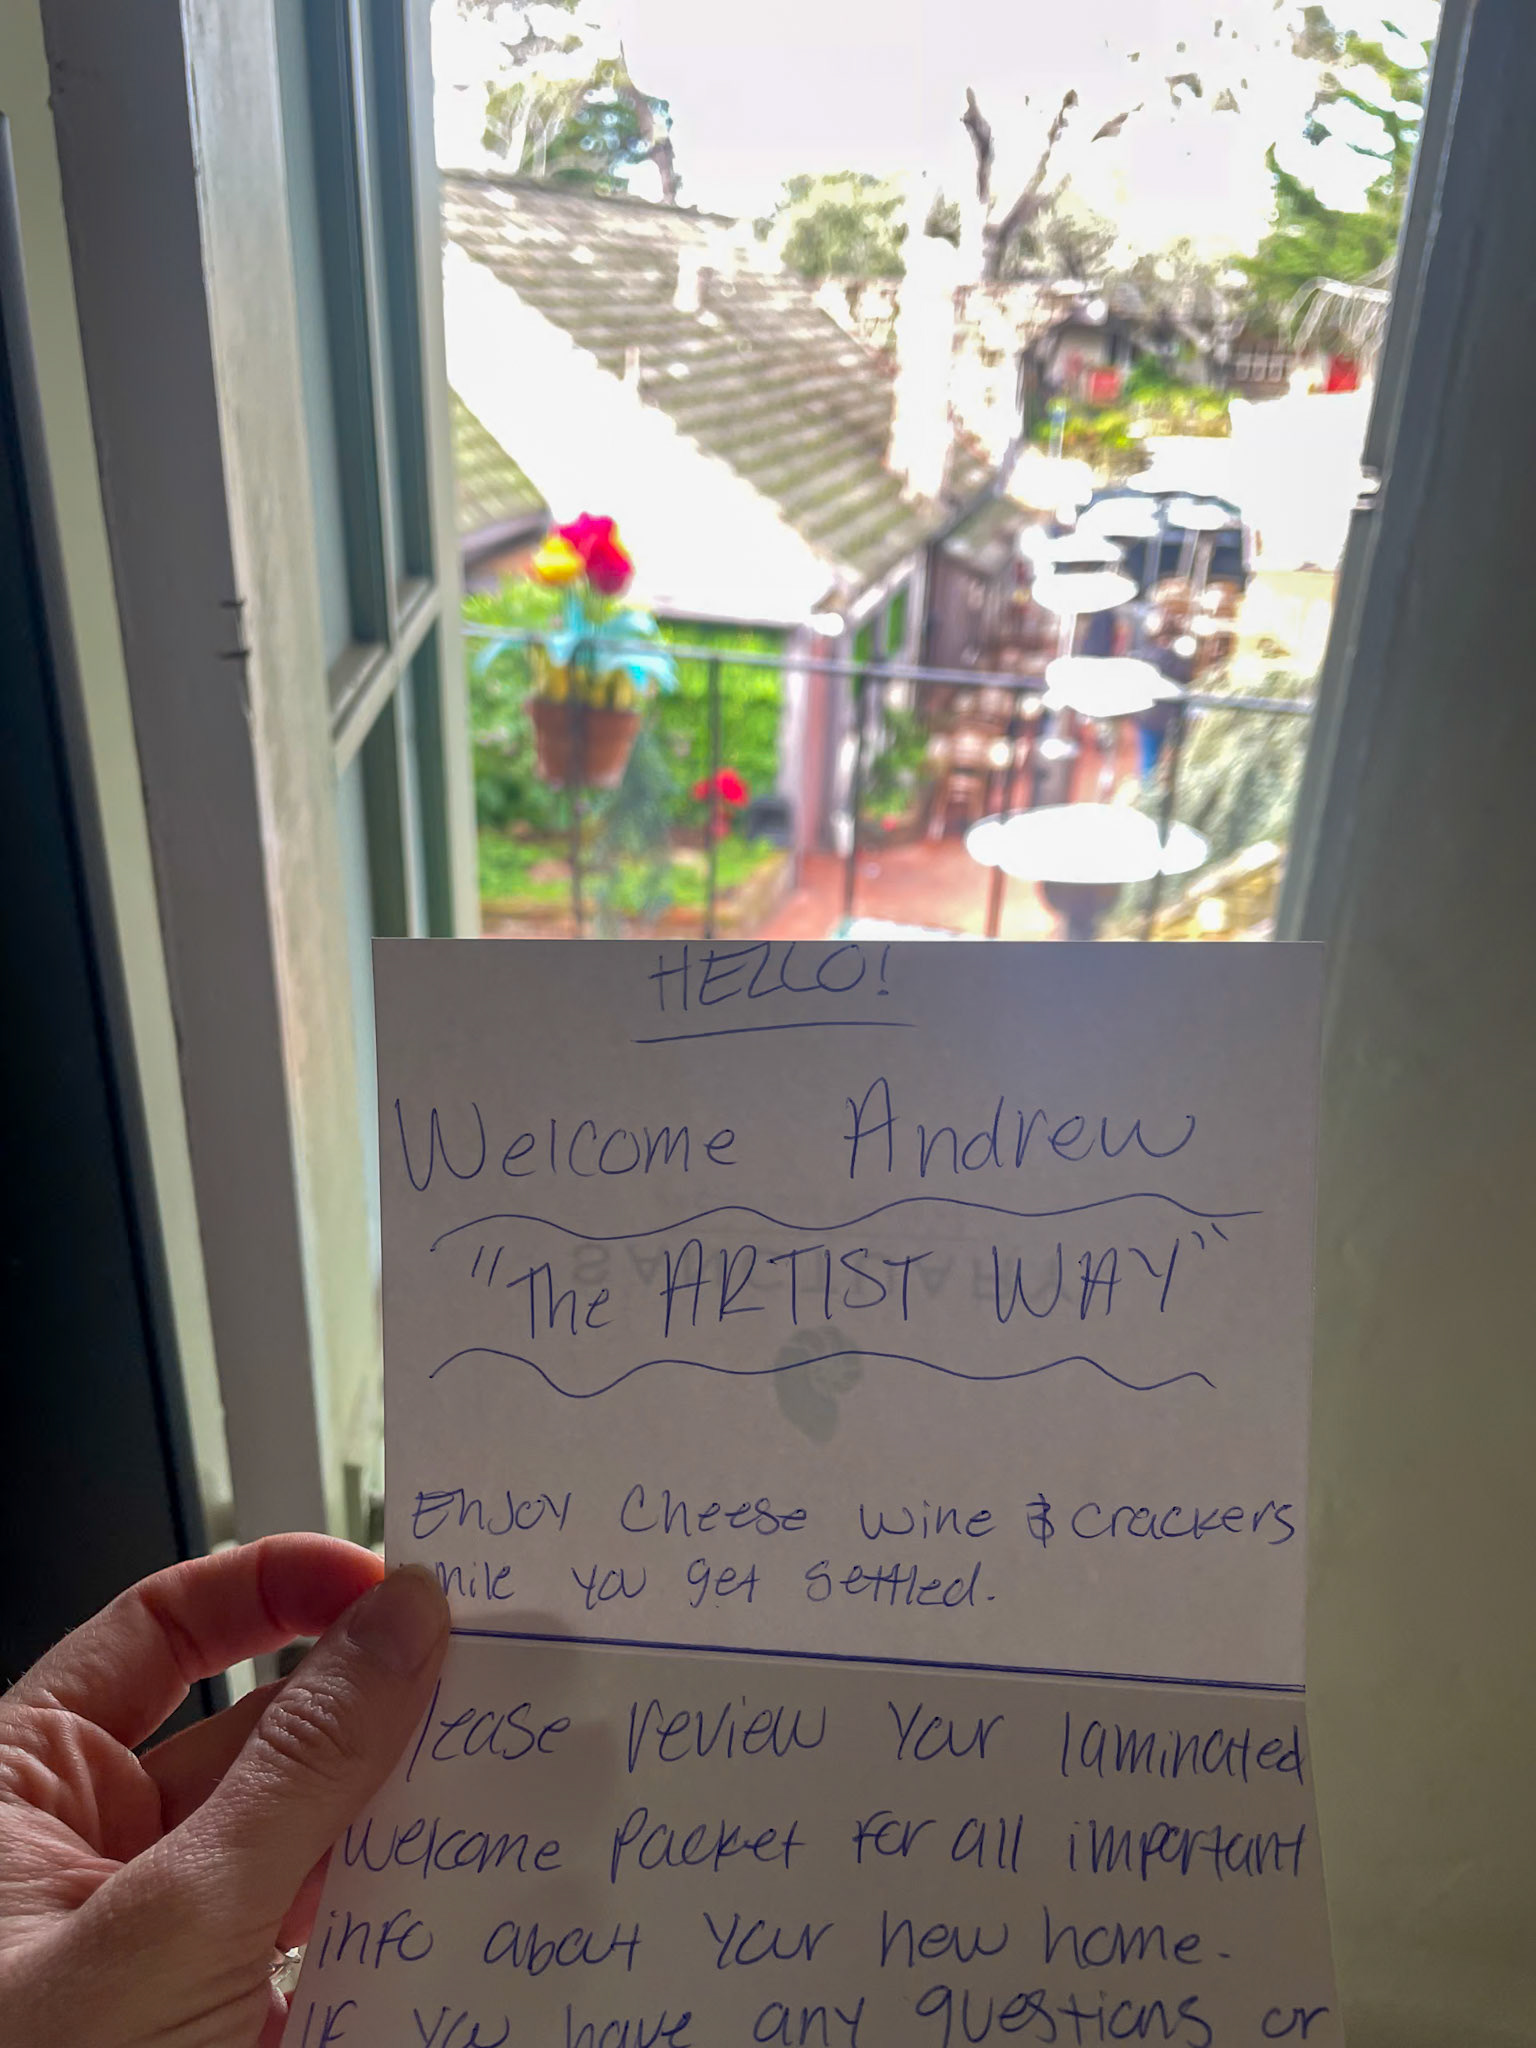 HELLO!
Welcome Andrew
"The ARTIST WAY"
Enjoy Cheese wine & crackers
while you get settled.
Please review your laminated
Welcome Packet for all important
info about your new home.
If you have any questions or